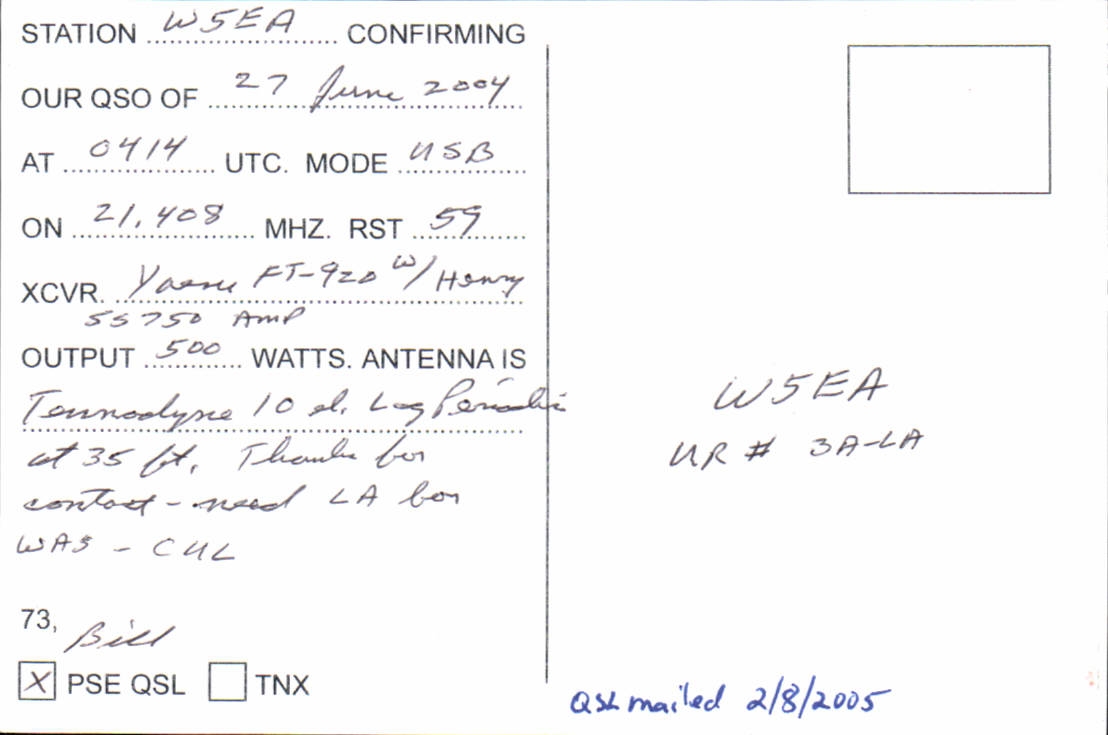 STATION W5EA CONFIRMING
OUR QSO OF 27 June 2004
AT 0414 UTC. MODE USB
ON 21.408 MHZ. RST 59
XCVR. Yaesu FT-920 W/ Henry
SS 750 AMP
OUTPUT 500 WATTS. ANTENNA IS
Tennadyne 10 el. Log Periodic
at 35 ft. Thanks for
contact - need LA for
WAS - CUL
73, Bill
X PSE QSL TNX
W5EA
UR # 3A-LA
QSL mailed 2/8/2005